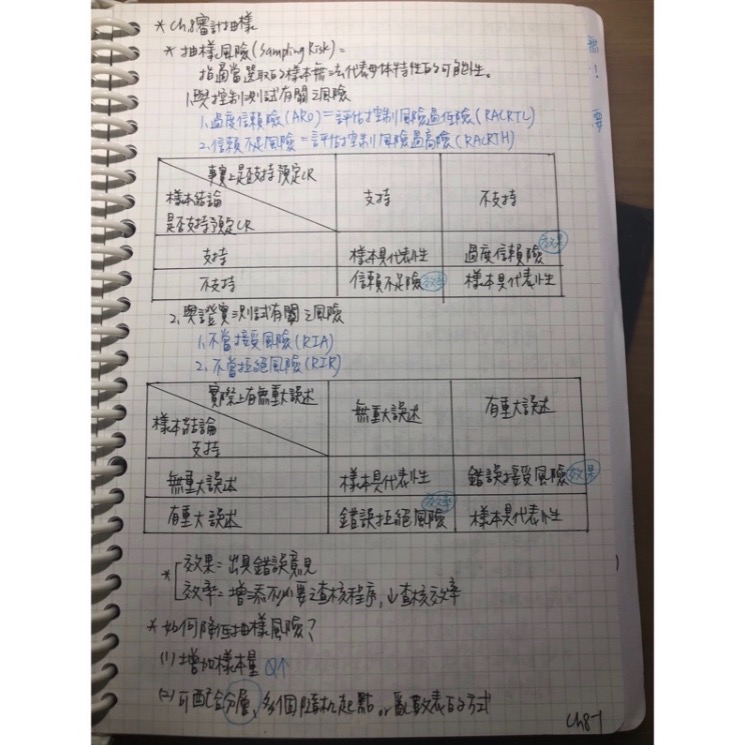 * Ch8 審計抽樣
* 抽樣風險(Sampling Risk)=
指適當選取的樣本無法代表母体特性的可能性。
1.與控制測試有關之風險
1.過度信賴險(ARO)=評估控制風險過低險(RACRTL)
2.信賴不足風險=評估控制風險過高險(RACRTH)
事實上是否支持預定CR
樣本結論
是否支持預定CR
支持
不支持
支持
樣本具代表性
過度信賴險 效果
不支持
信賴不足險 效率
樣本具代表性
2.與證實測試有關之風險
1.不當接受風險(RIA)
2.不當拒絕風險(RIR)
實際上有無重大誤述
樣本結論
支持
無重大誤述
有重大誤述
無重大誤述
樣本具代表性
錯誤接受風險 效果
有重大誤述
錯誤拒絕風險 效率
樣本具代表性
* 效果=出具錯誤意見
效率=增添不必要之查核程序,↓查核效率
* 如何降低抽樣風險?
(1)增加樣本量 Q↑
(2)可配合分層、多個隨机起點 or 亂數表的方式
Ch8-1
無!
要